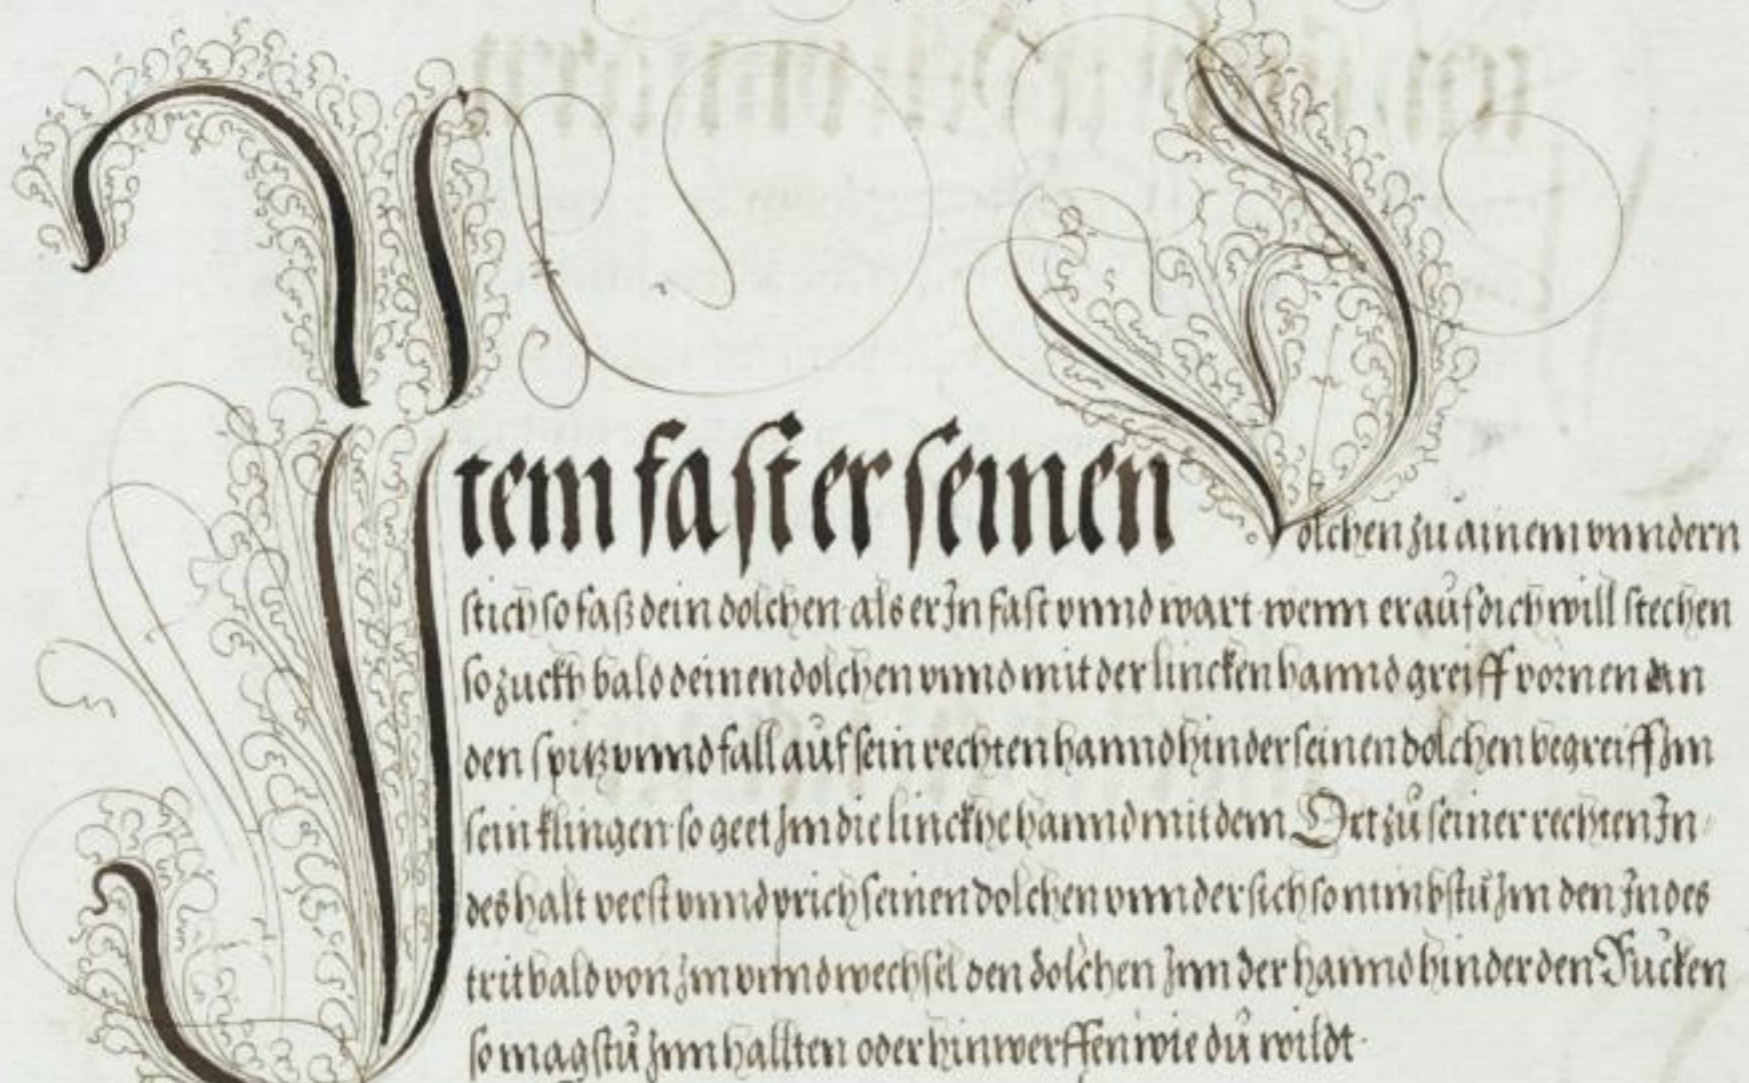 Item fast er seinen Dolchen zů ainem vnndern
stich so faß dein dolchen als er In fast vnnd wart wenn er aůf dich will stechen
so zuckh bald deinen dolchen vnnd mit der lincken hannd greiff vornen an
den spitz vnnd fall aůf sein rechten hannd hinder seinen dolchen begreiff Im
sein klingen so geet Im die linckhe hannd mit dem Ort zů seiner rechten In
des halt veest vnnd prich seinen dolchen vnnder sich so nimbstů Im den Indes
trit bald von Im vnnd wechsel den dolchen Inn der hannd hinder den Růcken
so magstů Inn hallten oder hinwerffen wie dů wildt